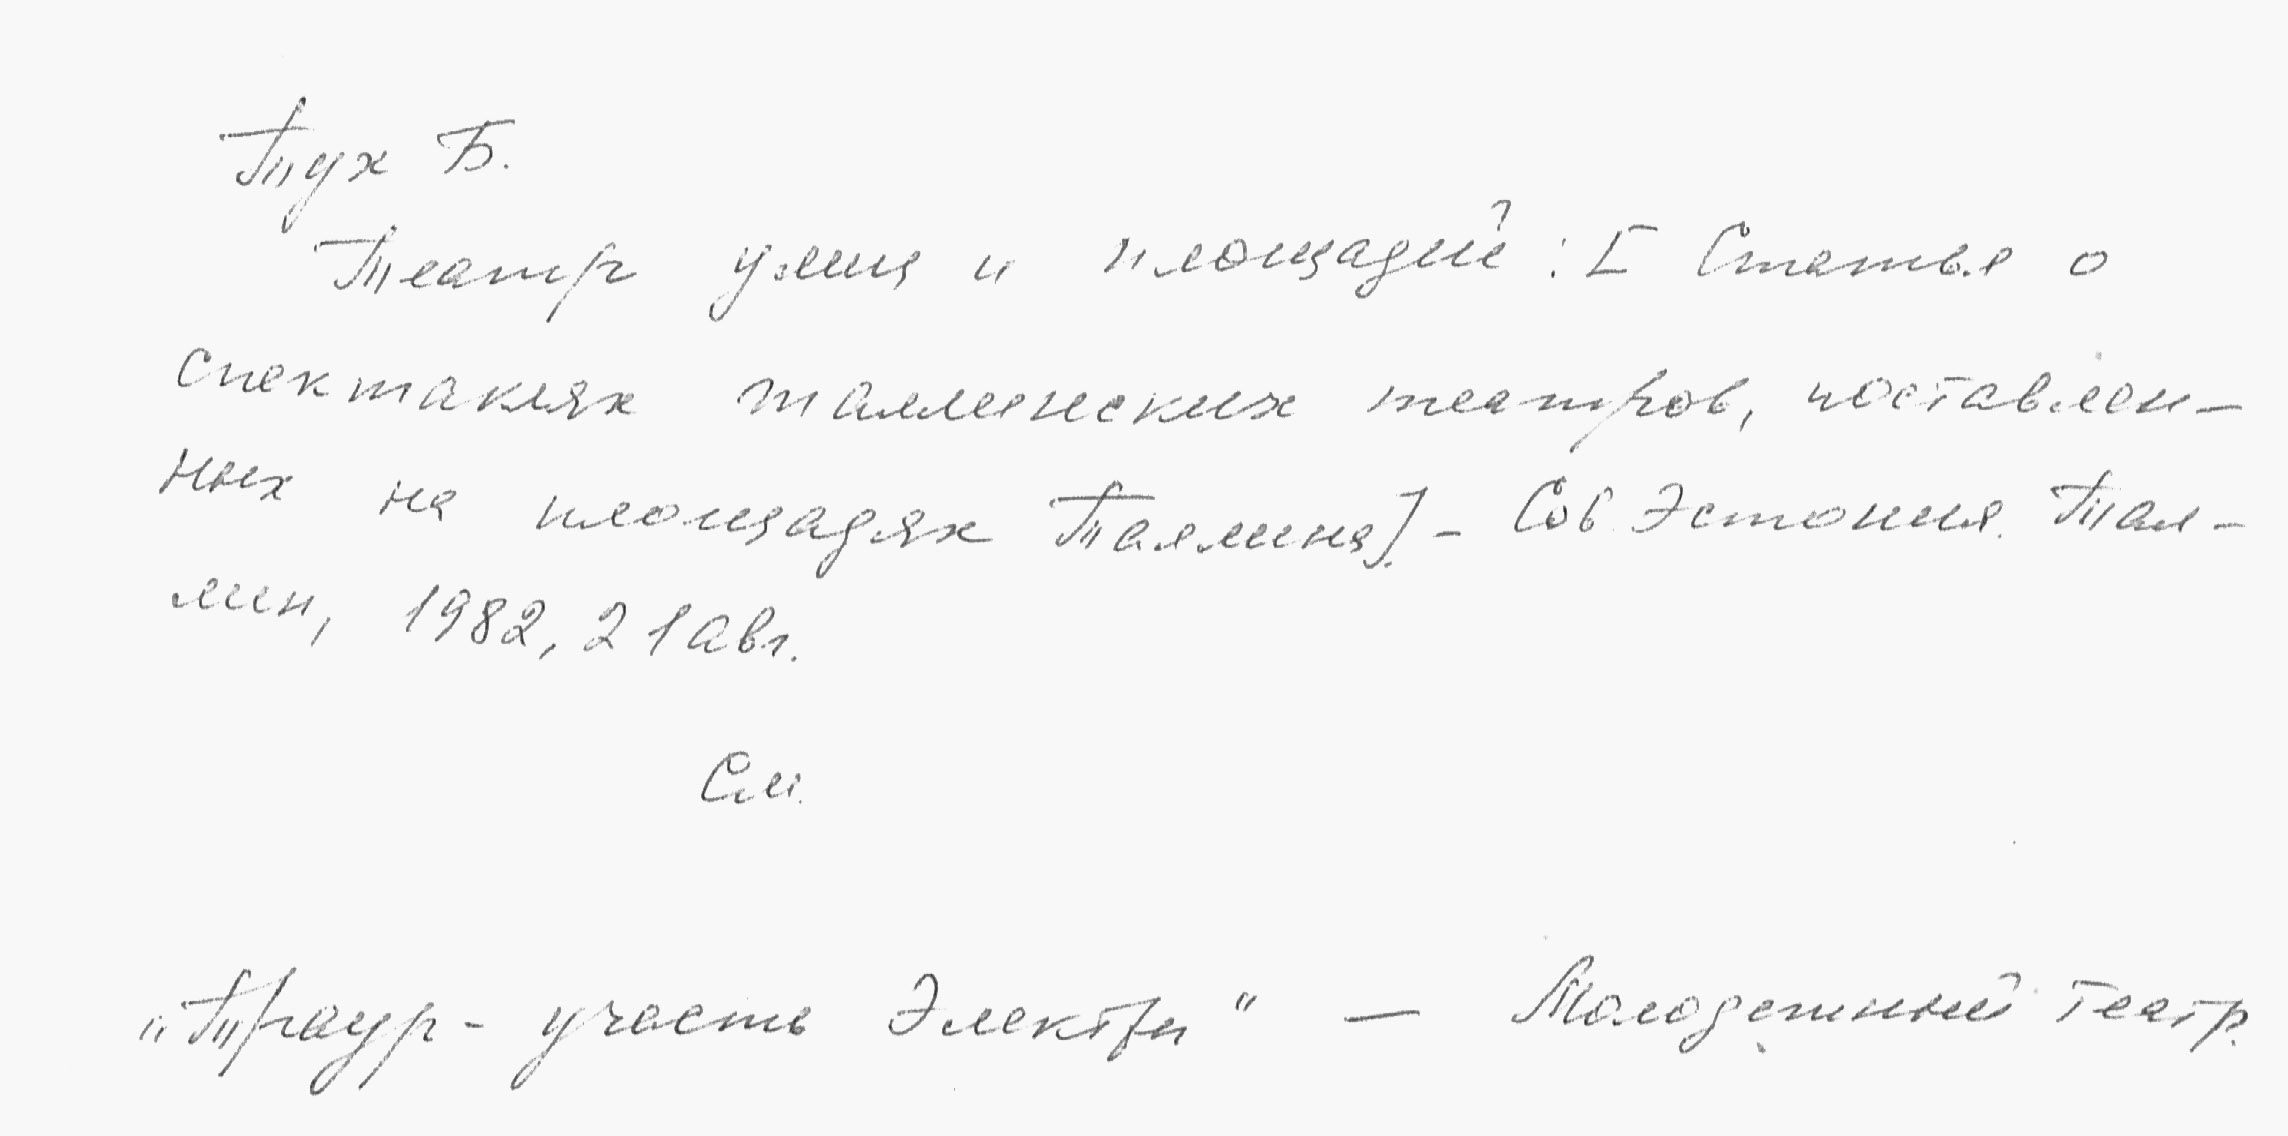 Тух Б.
Театр улиц и площадей: [Статья о
спектаклях таллинских театров, поставлен-
ных на площадях Таллина]. - Сов. Эстония. Тал-
лин, 1982, 21 авг.
См.
„Траур - участь Электры" — Молодежный театр.